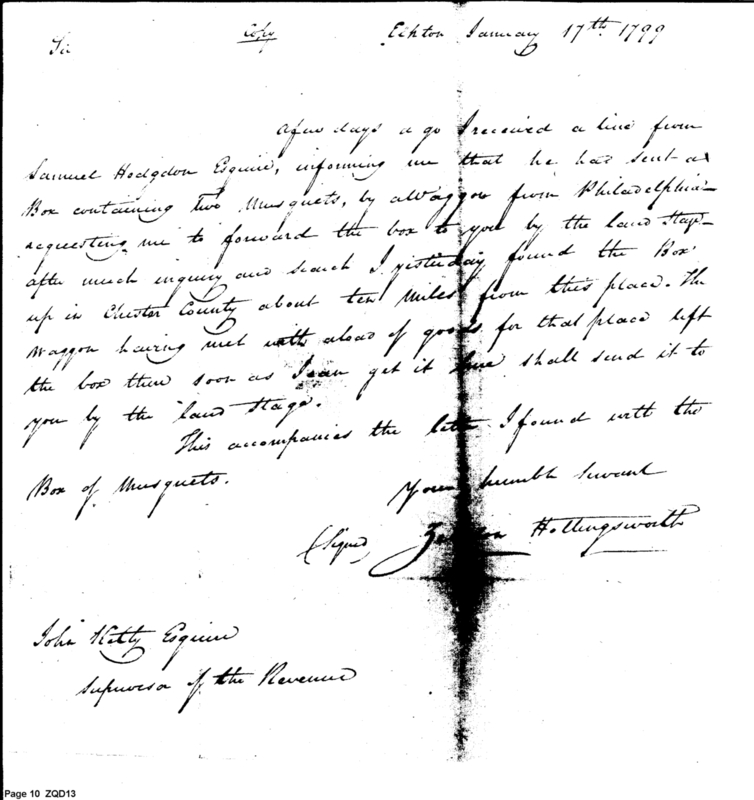 Copy Elkton January 17th 1799
Sir
A few days a go I received a line from
Samuel Hodgdon Esquire, informing me that he had sent a
Box containing two Musquets, by a Waggon from Philadelphia
requesting me to forward the box to you by the land Stage
after much inquiry and search I yesterday found the Box
up in Chester County about ten Miles from this place. The
Waggon having met with a load of goods for that place left
the box there soon as I can get it here shall send it to
you by the land Stage.
This accompanies the letter I found with the
Box of Musquets.
Your humble Servant
(Signed) Hollingsworth
John Kilty Esquire
Supervisor of the Revenue
Page 10 ZQD13